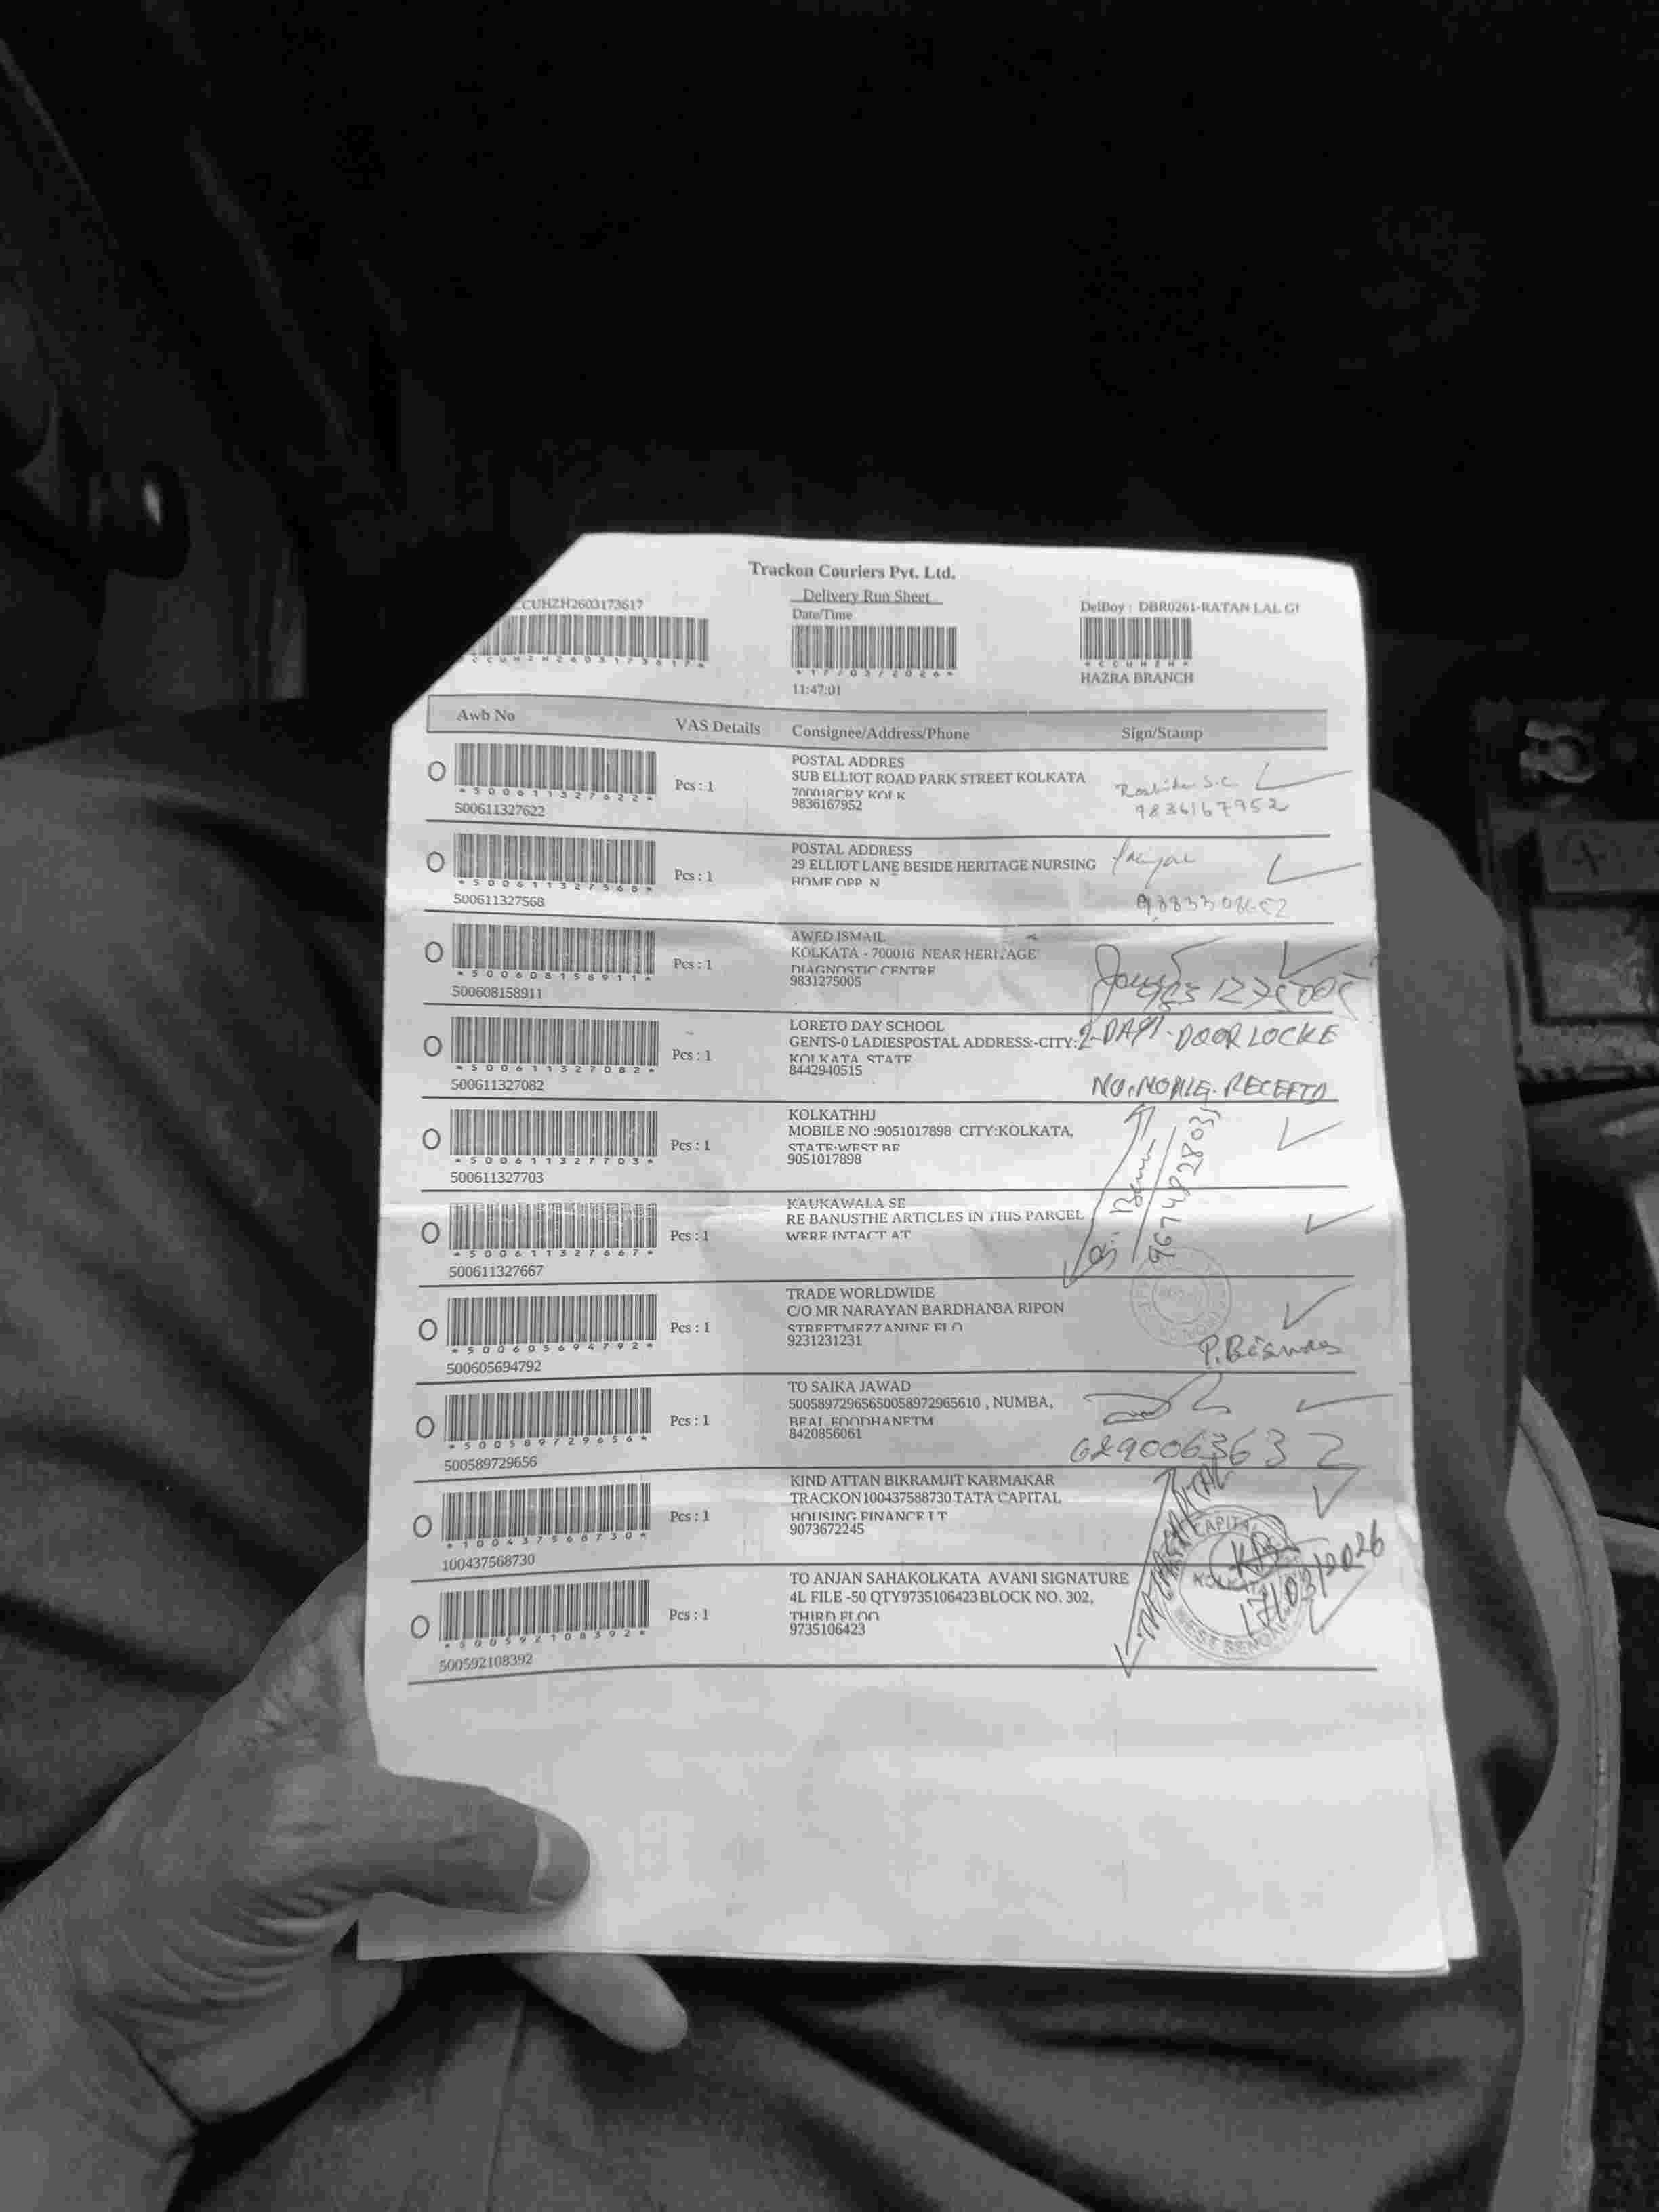 Trackon Couriers Pvt. Ltd.
Delivery Run Sheet
CCUHZH2603173617
Date/Time
DelBoy : DBR0261-RATAN LAL GI
*CCUHZH2603173617*
*17/03/2026*
*CCUHZH*
11:47:01
HAZRA BRANCH
Awb No VAS Details Consignee/Address/Phone Sign/Stamp
*500611327622*
500611327622
Pcs : 1
POSTAL ADDRES
SUB ELLIOT ROAD PARK STREET KOLKATA
700018CRY KOLK
9836167952
9836167952
*500611327568*
500611327568
Pcs : 1
POSTAL ADDRESS
29 ELLIOT LANE BESIDE HERITAGE NURSING
HOME OPP N
*500608158911*
500608158911
Pcs : 1
AWED ISMAIL
KOLKATA - 700016 NEAR HERITAGE
DIAGNOSTIC CENTRE
9831275005
*500611327082*
500611327082
Pcs : 1
LORETO DAY SCHOOL
GENTS-0 LADIESPOSTAL ADDRESS:-CITY:
KOLKATA, STATE
8442940515
2-DAY-DOOR LOCKE
*500611327703*
500611327703
Pcs : 1
KOLKATHHJ
MOBILE NO :9051017898 CITY:KOLKATA,
STATE:WEST BE
9051017898
*500611327667*
500611327667
Pcs : 1
KAUKAWALA SE
RE BANUSTHE ARTICLES IN THIS PARCEL
WERE INTACT AT
*500605694792*
500605694792
Pcs : 1
TRADE WORLDWIDE
C/O MR NARAYAN BARDHAN3A RIPON
STREETMEZZANINE FLO
9231231231
P. Biswas
*500589729656*
500589729656
Pcs : 1
TO SAIKA JAWAD
50058972965650058972965610 , NUMBA,
REAL FOODHANETM
8420856061
6290063632
*100437568730*
100437568730
Pcs : 1
KIND ATTAN BIKRAMJIT KARMAKAR
TRACKON100437588730 TATA CAPITAL
HOUSING FINANCE LT
9073672245
CAPITAL
KOLKATA
WEST BENGAL
17/03/2026
*500592108392*
500592108392
Pcs : 1
TO ANJAN SAHAKOLKATA AVANI SIGNATURE
4L FILE -50 QTY9735106423 BLOCK NO. 302,
THIRD FLOO
9735106423